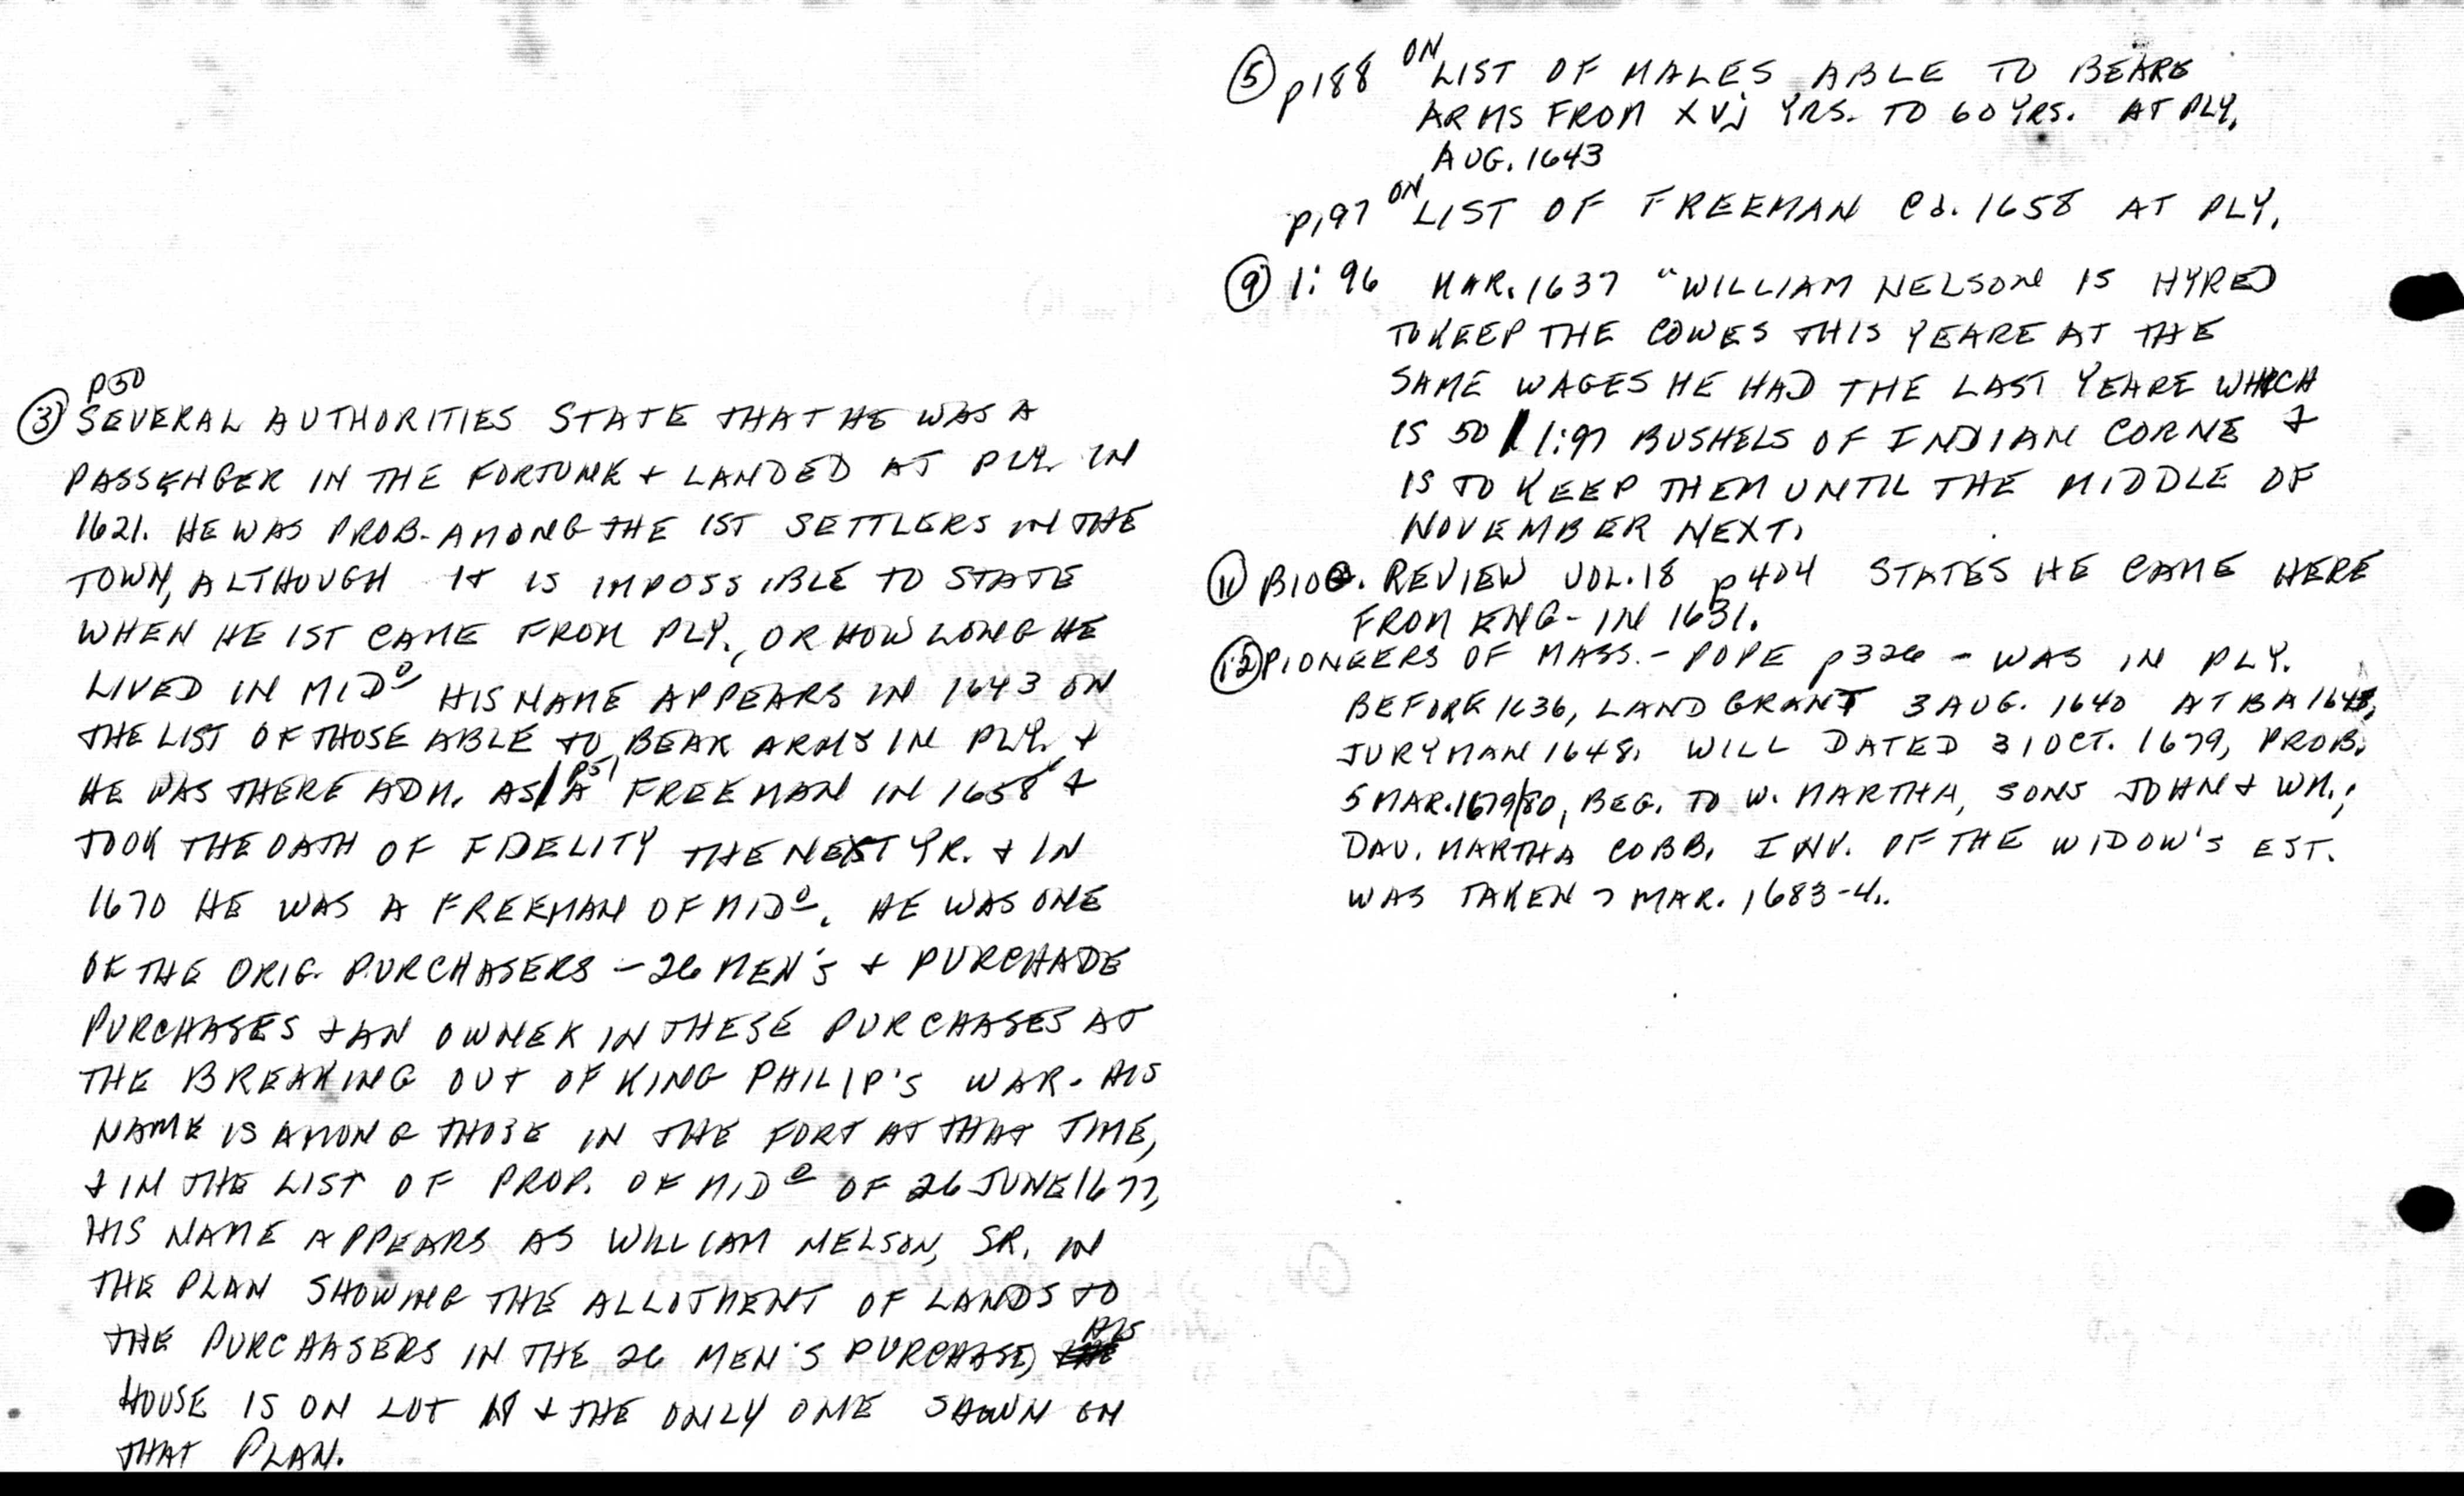 p50
③ SEVERAL AUTHORITIES STATE THAT HE WAS A
PASSENGER IN THE FORTUNE + LANDED AT PLY. IN
1621. HE WAS PROB. AMONG THE 1ST SETTLERS IN THE
TOWN, ALTHOUGH IT IS IMPOSSIBLE TO STATE
WHEN HE 1ST CAME FROM PLY., OR HOW LONG HE
LIVED IN MIDO HIS NAME APPEARS IN 1643 ON
THE LIST OF THOSE ABLE TO BEAR ARMS IN PLY. +
HE WAS THERE ADM. AS / p51 A FREEMAN IN 1658 +
TOOK THE OATH OF FIDELITY THE NEXT YR. + IN
1670 HE WAS A FREEMAN OF MIDO. HE WAS ONE
OF THE ORIG. PURCHASERS - 26 MEN'S + PURCHADE
PURCHASES + AN OWNER IN THESE PURCHASES AT
THE BREAKING OUT OF KING PHILIP'S WAR. HIS
NAME IS AMONG THOSE IN THE FORT AT THAT TIME,
+ IN THE LIST OF PROP. OF MIDO OF 26 JUNE 1677,
HIS NAME APPEARS AS WILLIAM NELSON, SR. IN
THE PLAN SHOWING THE ALLOTMENT OF LANDS TO
THE PURCHASERS IN THE 26 MEN'S PURCHASE, HIS
HOUSE IS ON LOT + THE ONLY ONE SHOWN ON
THAT PLAN.
⑤ p188 ON LIST OF MALES ABLE TO BEARE
ARMS FROM XVj YRS. TO 60 YRS. AT PLY.
AUG. 1643
p197 ON LIST OF FREEMAN Cd. 1658 AT PLY.
⑨ 1:96 MAR. 1637 "WILLIAM NELSON IS HYRED
TO KEEP THE COWES THIS YEARE AT THE
SAME WAGES HE HAD THE LAST YEARE WHICH
IS 50 / 1:97 BUSHELS OF INDIAN CORNE +
IS TO KEEP THEM UNTIL THE MIDDLE OF
NOVEMBER NEXT.
⑪ BIOG. REVIEW VOL. 18 p404 STATES HE CAME HERE
FROM ENG- IN 1631.
⑫ PIONEERS OF MASS. - POPE p326 - WAS IN PLY.
BEFORE 1636, LAND GRANT 3 AUG. 1640 ATBA 1643,
JURYMAN 1648. WILL DATED 31 OCT. 1679, PROB.
5 MAR. 1679/80, BEG. TO W. MARTHA, SONS JOHN + WM.;
DAU. MARTHA COBB. INV. OF THE WIDOW'S EST.
WAS TAKEN 7 MAR. 1683-4.